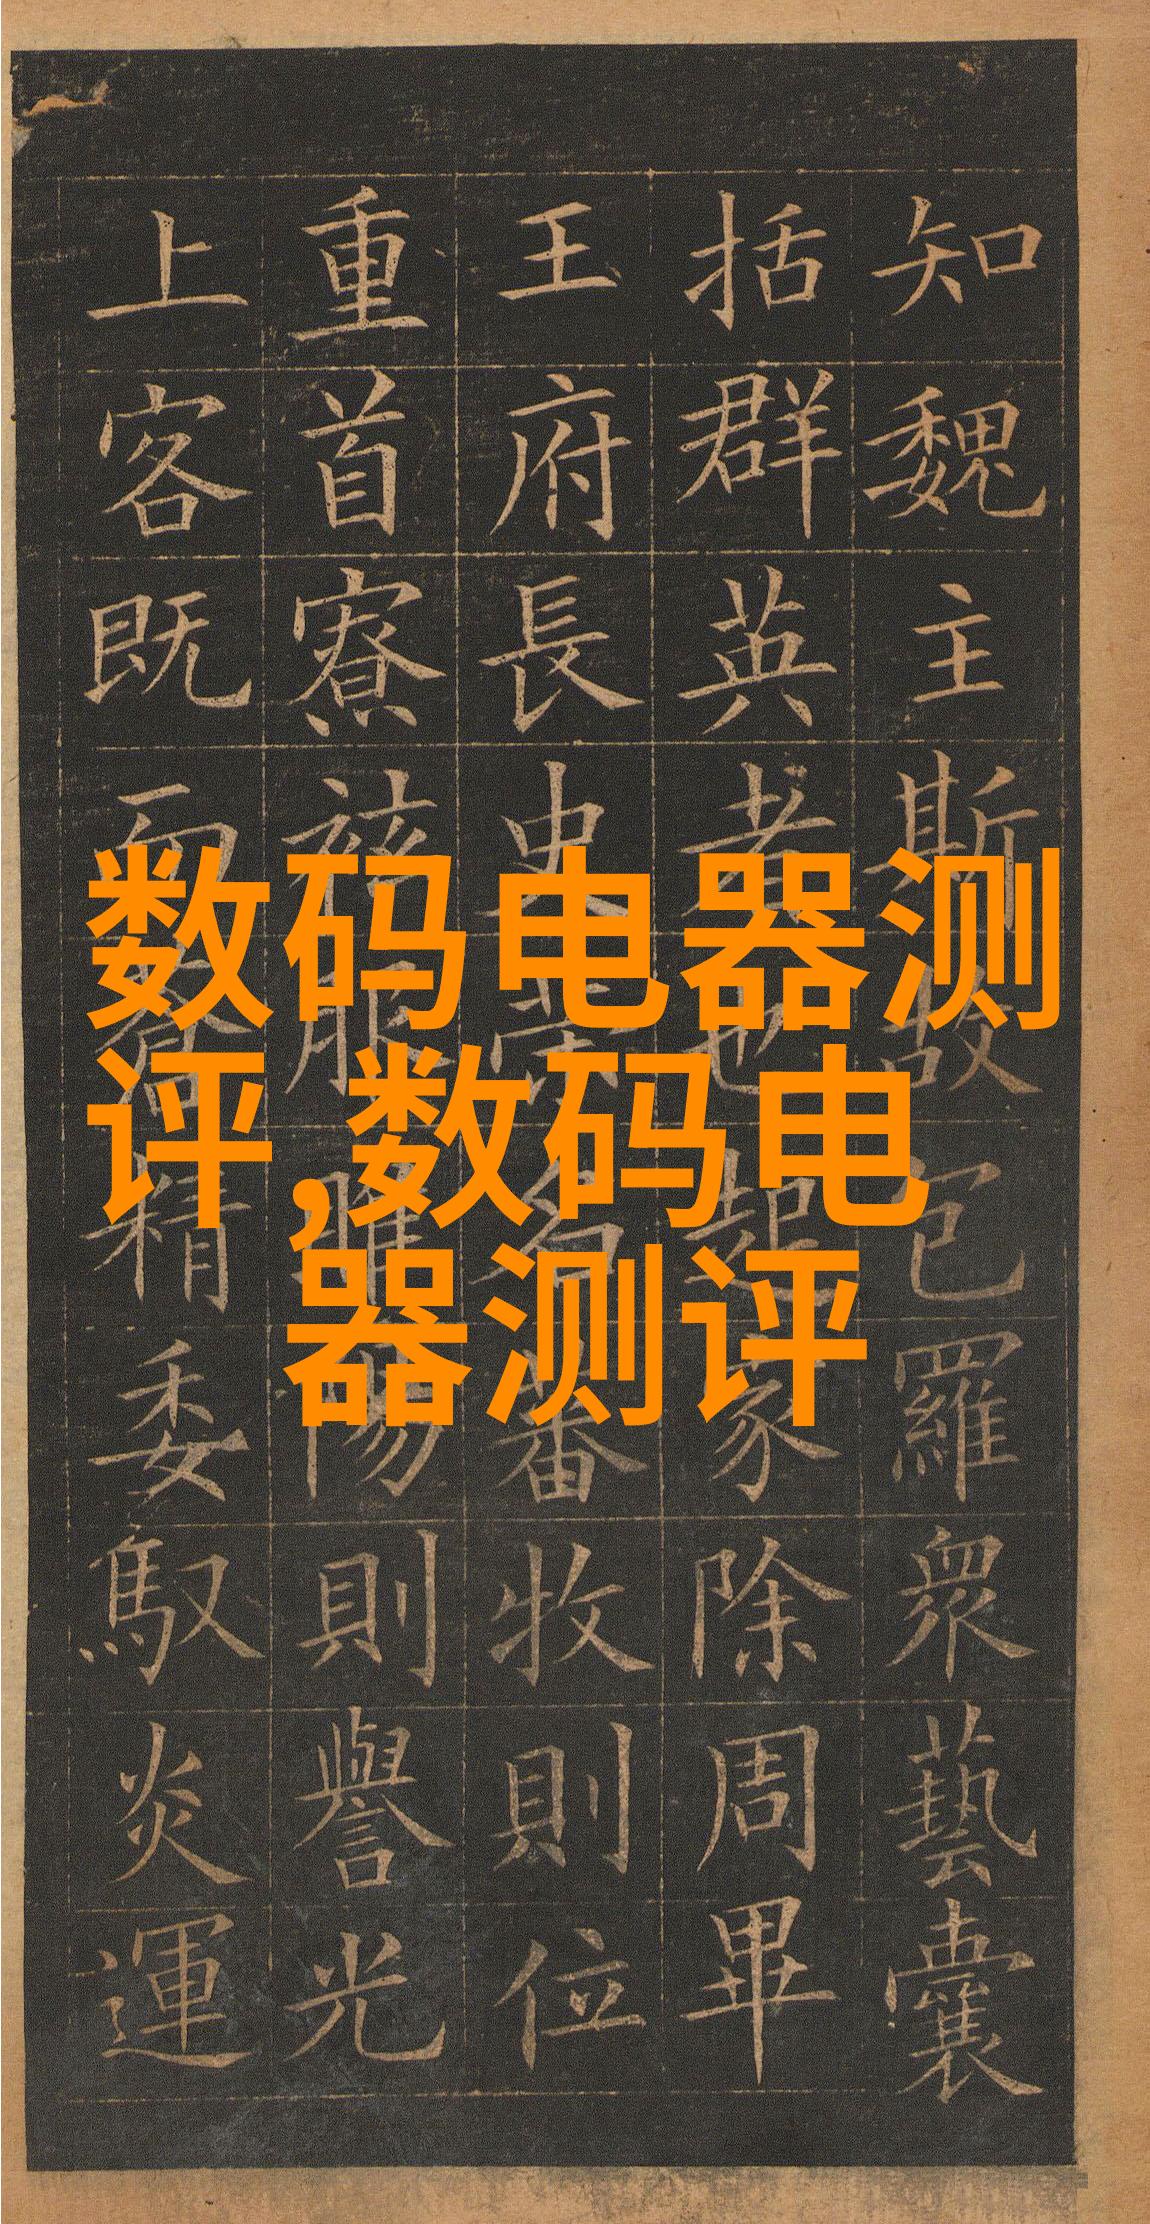 数码电器测
评,数码电
器测评
知魏主斯故包羅衆藝囊
括群英者也起家除周畢
王府長史名蕃牧則位
重首寮袨服睢陽則譽光
上客既而眷精委馭炎運